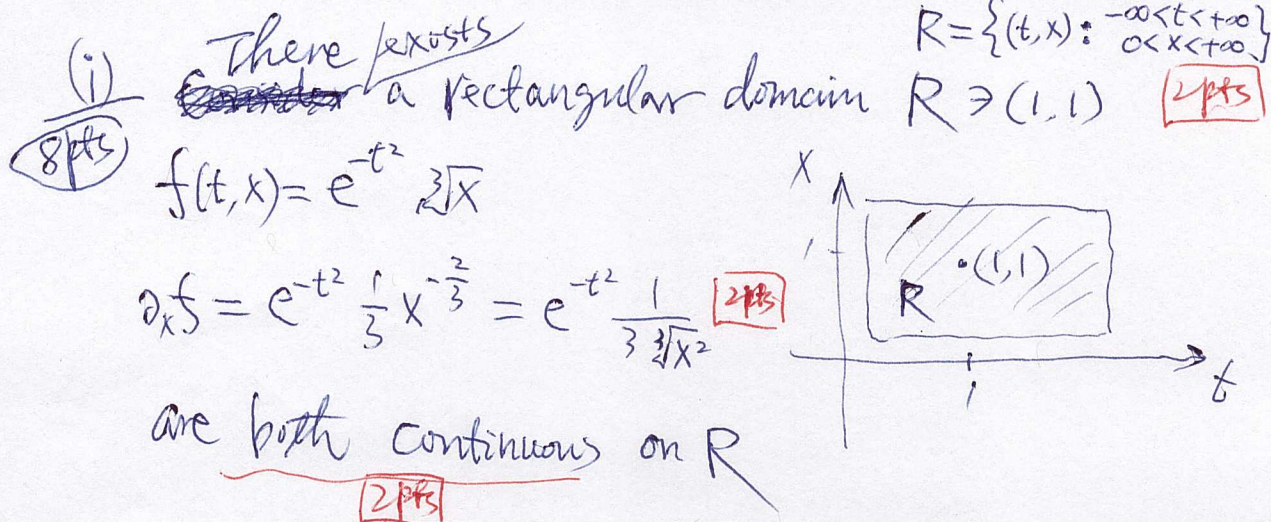 R = {(t,x) : -∞<t<+∞
0<x<+∞}
(i) There exists
a rectangular domain R ∋ (1,1) 2pts
8pts
f(t,x) = e^{-t²} ∛x
∂ₓf = e^{-t²} 1/3 x^{-2/3} = e^{-t²} 1/(3 ∛x²) 2pts
are both continuous on R
2pts
x
1
•(1,1)
R
1
t